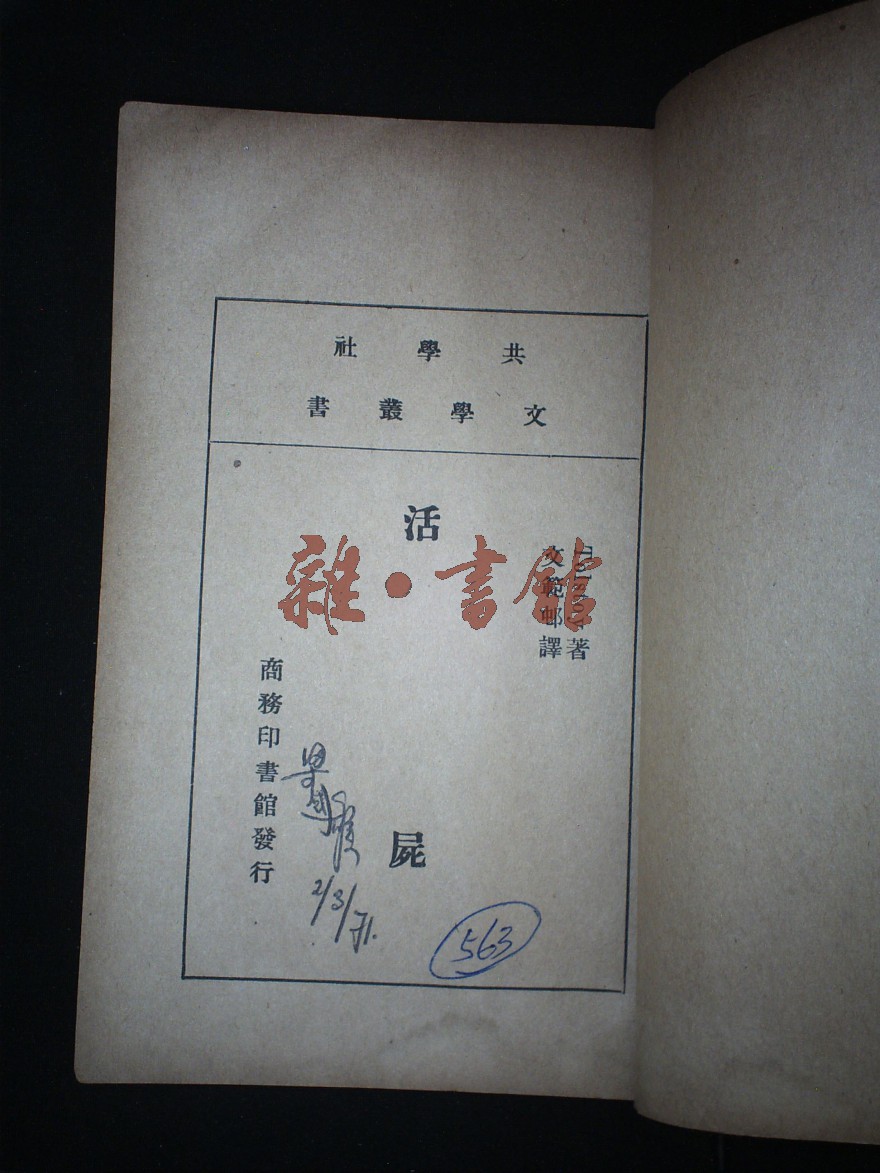 共學社
文學叢書
Tolstoy著
文範邨譯
活屍
商務印書館發行
2/3/71.
563
雜·書館